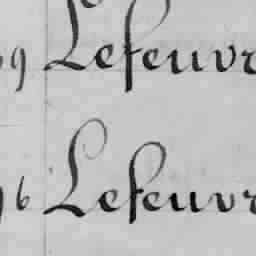 9 Lefeuvr
6 Lefeuvr